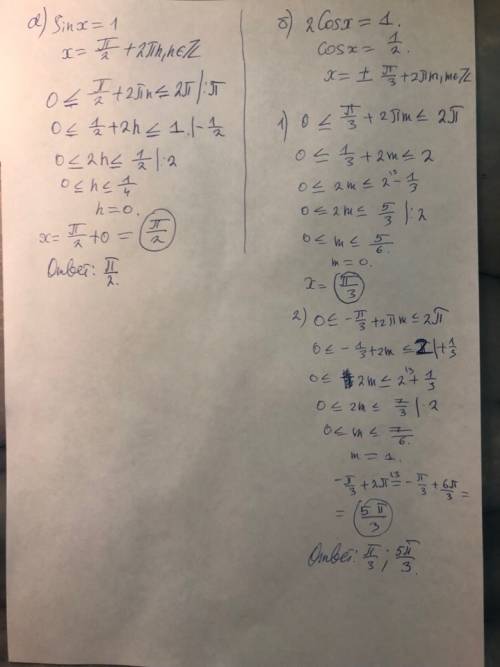 а) Sinx = 1
x = π/2 + 2πn, n∈Z
0 ≤ π/2 + 2πn ≤ 2π |:π
0 ≤ 1/2 + 2n ≤ 1. |-1/2
0 ≤ 2n ≤ 1/2 |:2
0 ≤ n ≤ 1/4
n = 0.
x = π/2 + 0 = π/2
Ответ: π/2.
б) 2Cosx = 1.
Cosx = 1/2.
x = ± π/3 + 2πm, m∈Z
1) 0 ≤ π/3 + 2πm ≤ 2π
0 ≤ 1/3 + 2m ≤ 2
0 ≤ 2m ≤ 2\3 - 1/3
0 ≤ 2m ≤ 5/3 |:2
0 ≤ m ≤ 5/6.
m = 0.
x = π/3
2) 0 ≤ -π/3 + 2πm ≤ 2π
0 ≤ -1/3 + 2m ≤ 2 |+1/3
0 ≤ 2m ≤ 2\3 + 1/3
0 ≤ 2m ≤ 7/3 |:2
0 ≤ m ≤ 7/6.
m = 1.
-π/3 + 2π\3 = -π/3 + 6π/3 =
= 5π/3
Ответ: π/3; 5π/3.